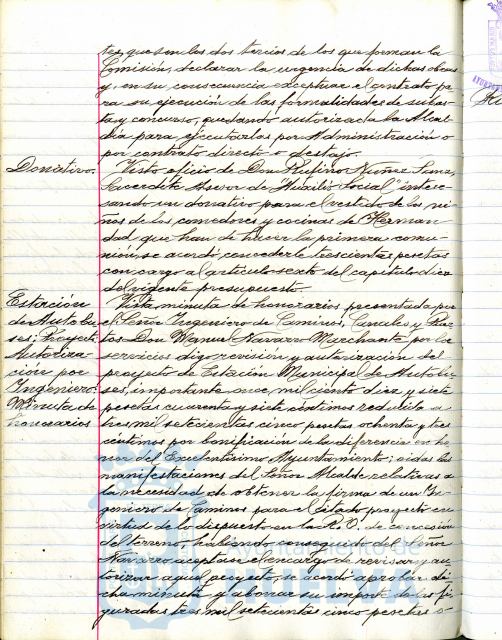 tes, que son los dos tercios de los que forman la
Comisión, declarar la urgencia de dichas obras
y, en su consecuencia exceptuar el contrato pa-
ra su ejecución de las formalidades de subas-
ta y concurso, quedando autorizada la Alcal-
día para ejecutarlas por Administración o
por contrato directo o destajo.
Donativo.
Visto oficio de Don Rufino Núñez Sanz,
Sacerdote Asesor de "Auxilio Social" intere-
sando un donativo para el vestido de los ni-
ños de los comedores y cocinas de Herman-
dad que han de hacer la primera comu-
nión, se acordó concederle trescientas pesetas
con cargo al artículo sexto del capítulo diez
del vigente presupuesto.
Estación
de Autobu-
ses: Proyecto
Autoriza-
ción por
Ingeniero:
Minuta de
honorarios
Vista minuta de honorarios presentada por
el Señor Ingeniero de Caminos, Canales y Puer-
tos Don Manuel Navarro Murchante por los
servicios de revisión y autorización del
proyecto de Estación Municipal de Autobu-
ses, importante once mil ciento diez y siete
pesetas cuarenta y siete céntimos reducida a
tres mil setecientas cinco pesetas ochenta y tres
céntimos por bonificación de la diferencia en ho-
nor del Excelentísimo Ayuntamiento; oídas las
manifestaciones del Señor Alcalde relativas a
la necesidad de obtener la firma de un In-
geniero de Caminos para el citado proyecto en
virtud de lo dispuesto en la R.O. de concesión
del terreno, habiendo conseguido del Señor
Navarro aceptase el encargo de revisar y au-
torizar aquel proyecto, se acordó aprobar di-
cha minuta y abonar su importe de las fi-
guradas tres mil setecientas cinco pesetas o-
Ayuntamiento de